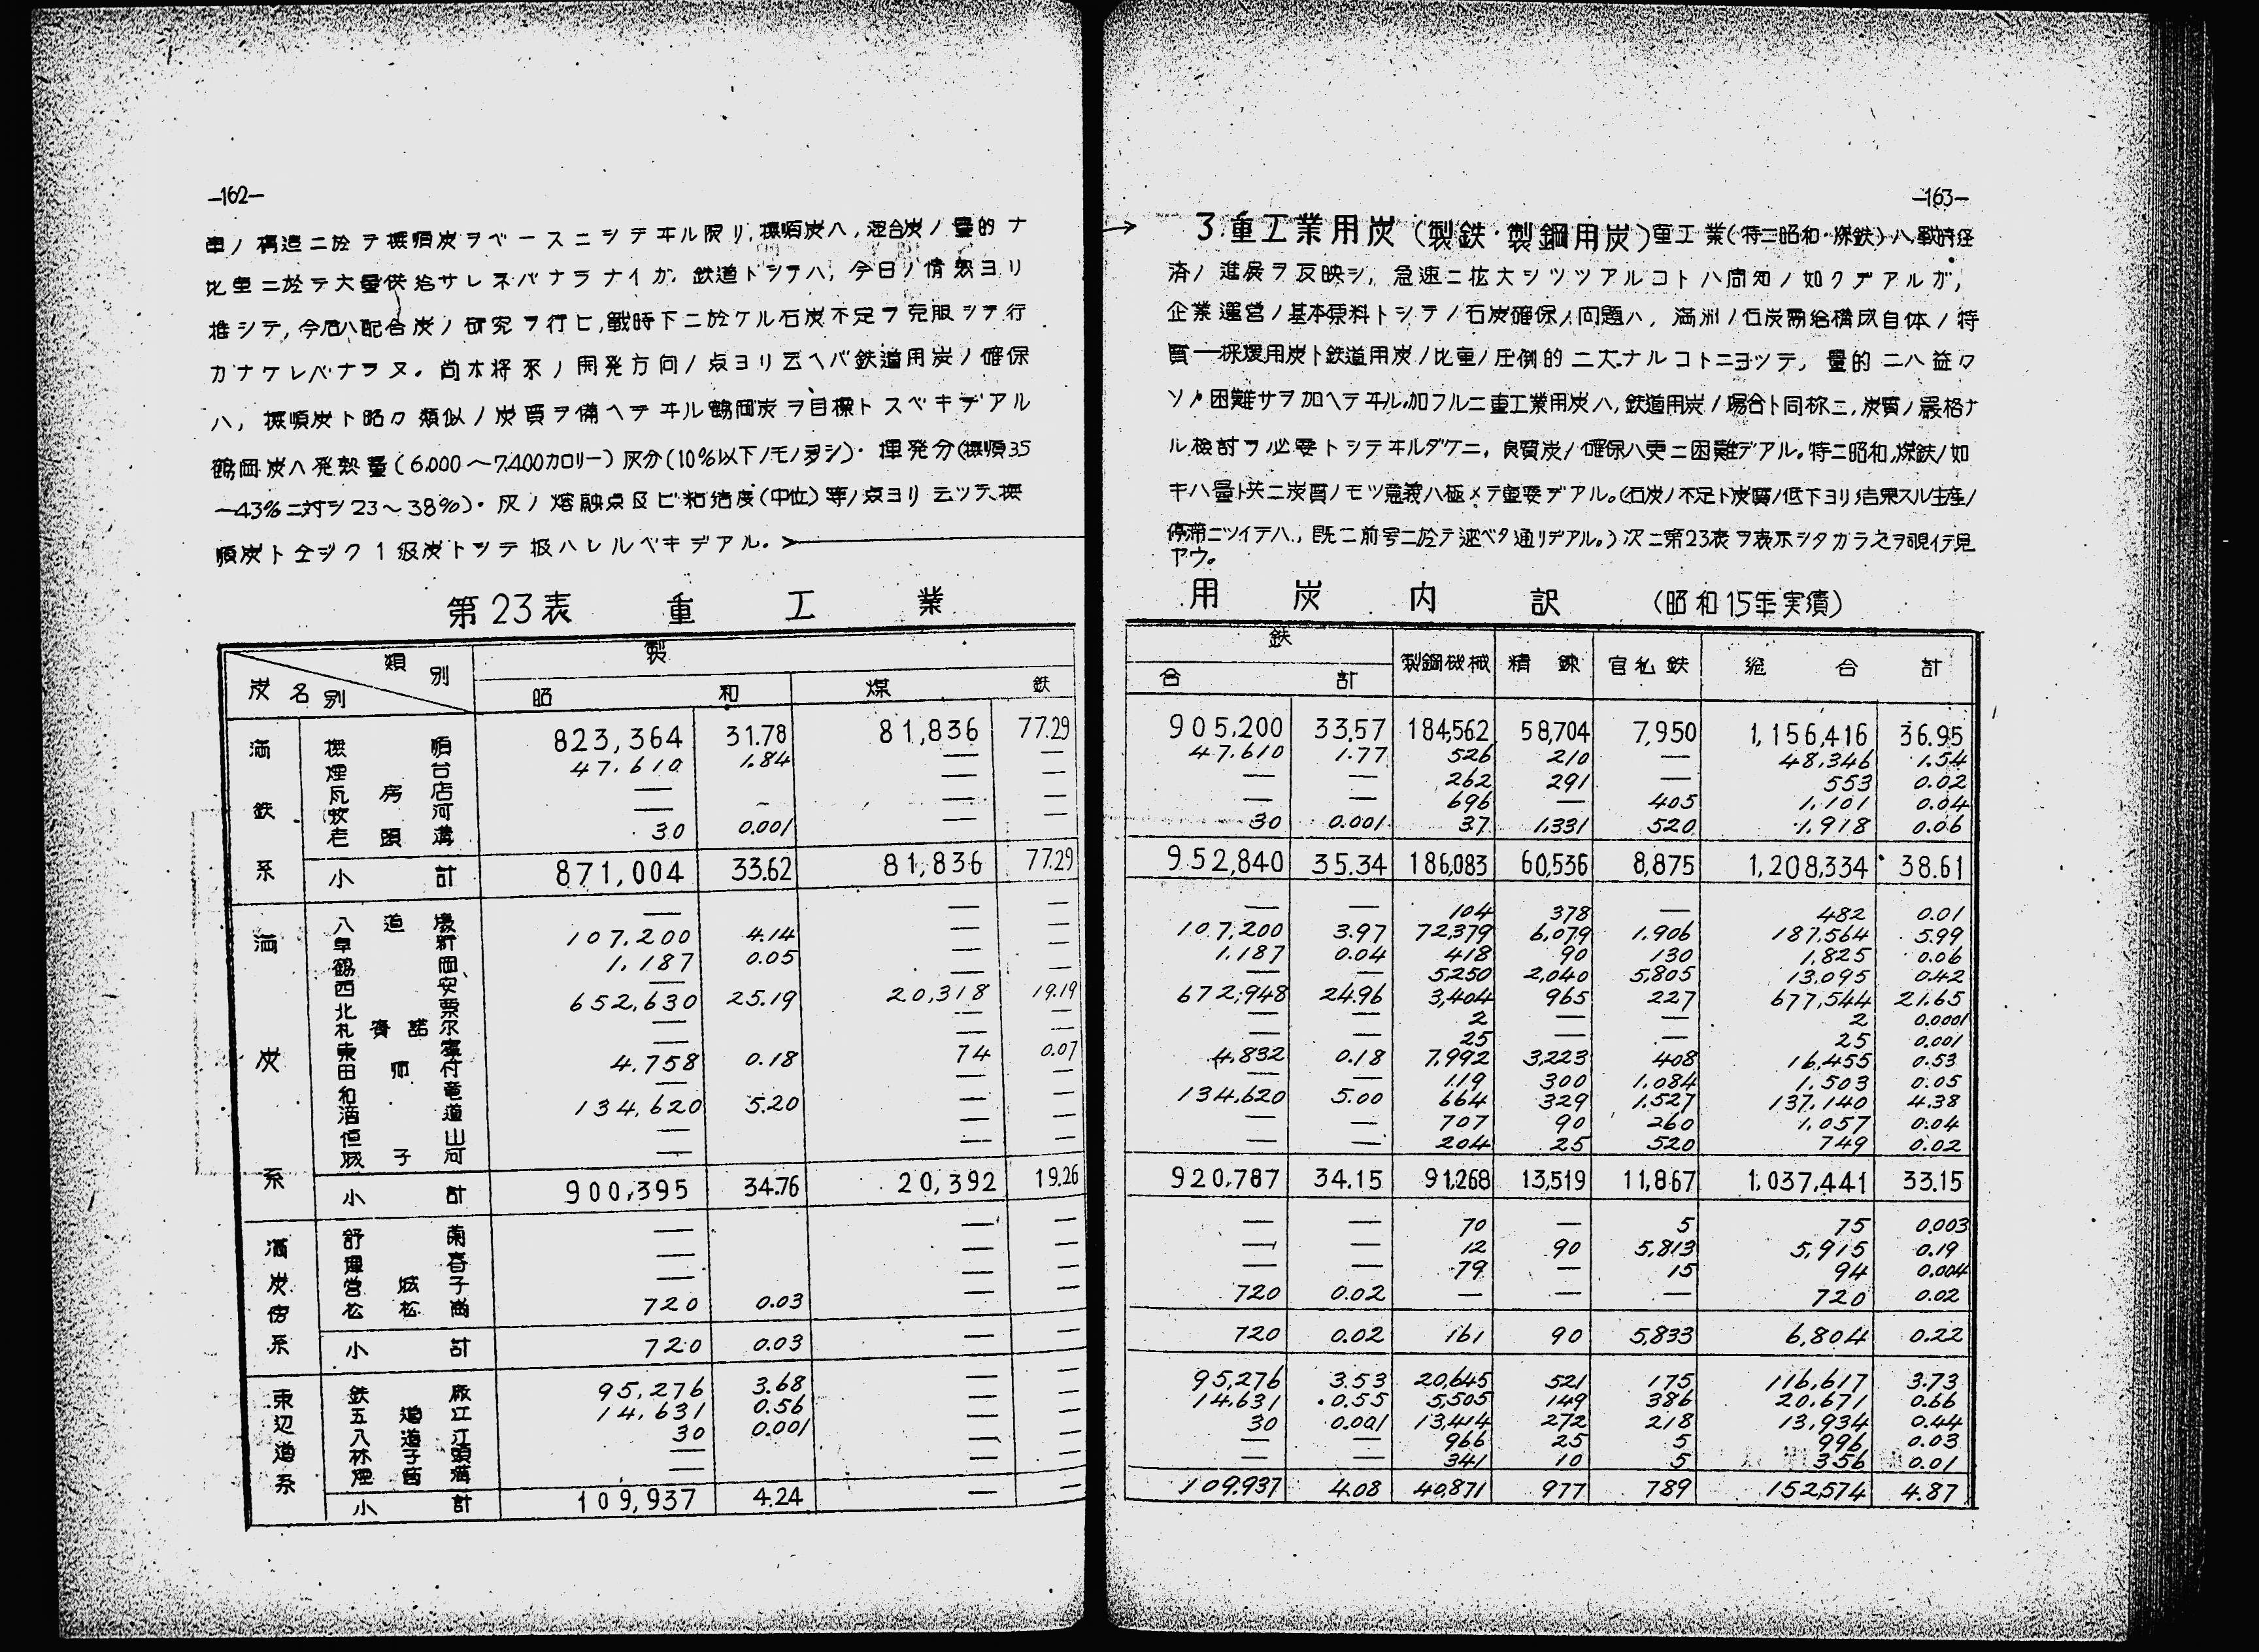 —162—
重ノ構造ニ於テ撫順炭ヲベースニシテヰル限リ,撫順炭ハ,混合炭ノ量的ナ
比重ニ於テ大量供給サレネバナラナイガ,鉄道トシテハ,今日ノ情勢ヨリ
推シテ,今后ハ配合炭ノ研究ヲ行ヒ,戦時下ニ於ケル石炭不足ヲ克服シテ行
カナケレバナラヌ。尚本将来ノ開発方向ノ点ヨリ云ヘバ鉄道用炭ノ確保
ハ,撫順炭ト略々類似ノ炭質ヲ備ヘテヰル鶴岡炭ヲ目標トスベキデアル
鶴岡炭ハ発熱量(6.000〜7.400カロリー)灰分(10%以下ノモノ多シ)・揮発分(撫順35
—43%ニ対シ23〜38%)・灰ノ熔融点及ビ粘結度(中位)等ノ点ヨリ云ツテ,撫
順炭ト全ジク1級炭トシテ扱ハレルベキデアル。
第23表 重 工 業
類別 炭名別 製
昭 和 煤 鉄
満鉄系 撫順 823,364 31.78 81,836 77.29
煙台 47.610 1.84 — —
瓦房店 — — —
蛟河 — – — —
老頭溝 30 0.001 — —
小計 871,004 33.62 81,836 77.29
満炭系 八道壕 — — —
阜新 107.200 4.14 — —
鶴岡 1.187 0.05 — —
西安 — — —
北票 652,630 25.19 20,318 19.19
札賚諾尔 — — —
東寧 — — —
田師付 4.758 0.18 74 0.07
和竜 — — —
滴道 134.620 5.20 — —
恒山 — — —
城子河 — — —
小計 900,395 34.76 20,392 19.26
満炭傍系 舒蘭 — — —
琿春 — — —
営城子 — — —
720 0.03 — —
小計 720 0.03 — —
東辺道系 鉄廠 95,276 3.68 — —
五道江 14.631 0.56 — —
八道江 30 0.001 — —
林子頭 — — —
煙筒溝 — — —
小計 109,937 4.24 — —
—163—
3.重工業用炭(製鉄・製鋼用炭)重工業(特ニ昭和・煤鉄)ハ,戦時経
済ノ進展ヲ反映シ,急速ニ拡大シツツアルコトハ周知ノ如クデアルガ,
企業運営ノ基本原料トシテノ石炭確保ノ問題ハ,満洲ノ石炭需給構成自体ノ特
質—採煖用炭ト鉄道用炭ノ比重ノ圧倒的ニ大ナルコトニヨツテ,量的ニハ益々
ソノ困難サヲ加ヘテヰル,加フルニ重工業用炭ハ,鉄道用炭ノ場合ト同様ニ,炭質ノ厳格ナ
ル検討ヲ必要トシテヰルダケニ,良質炭ノ確保ハ更ニ困難デアル。特ニ昭和,煤鉄ノ如
キハ量ト共ニ炭質ノモツ意義ハ極メテ重要デアル。(石炭ノ不足ト炭質ノ低下ヨリ結果スル生産ノ
停滞ニツイテハ,既ニ前号ニ於テ述ベタ通リデアル。)次ニ第23表ヲ表示シタカラ之ヲ覗イテ見
ヤウ。
用 炭 内 訳 (昭和15年実績)
鉄 製鋼機械 精錬 官私鉄 総合計
合 計
905,200 33.57 184,562 58,704 7,950 1,156,416 36.95
47.610 1.77 526 210 — 48,346 1.54
— — 262 291 — 553 0.02
— — 696 — 405 1,101 0.04
30 0.001 37 1,331 520 1,918 0.06
952,840 35.34 186,083 60,536 8,875 1,208,334 38.61
— — 104 378 — 482 0.01
107,200 3.97 72,379 6,079 1.906 187,564 5.99
1.187 0.04 418 90 130 1,825 0.06
— — 5,250 2,040 5,805 13,095 0.42
672,948 24.96 3,404 965 227 677,544 21.65
— — 2 — — 2 0.0001
— — 25 — — 25 0.001
4,832 0.18 7,992 3,223 408 16,455 0.53
— — 119 300 1.084 1.503 0.05
134,620 5.00 664 329 1.527 137.140 4.38
— — 707 90 260 1.057 0.04
— — 204 25 520 749 0.02
920,787 34.15 91,268 13,519 11,867 1,037,441 33.15
— — 70 — 5 75 0.003
— — 12 90 5,813 5,915 0.19
— — 79 — 15 94 0.004
720 0.02 — — — 720 0.02
720 0.02 161 90 5,833 6,804 0.22
95,276 3.53 20,645 521 175 116,617 3.73
14.631 0.55 5,505 149 386 20.671 0.66
30 0.001 13,414 272 218 13,934 0.44
— — 966 25 5 996 0.03
— — 341 10 5 356 0.01
109,937 4.08 40,871 977 789 152,574 4.87